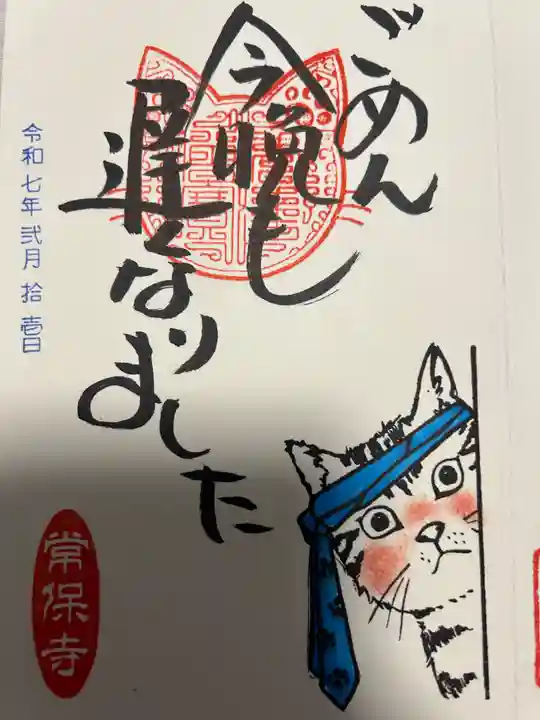 ごめん
今晩も
遅くなりました
令和七年弐月拾壱日
常保寺